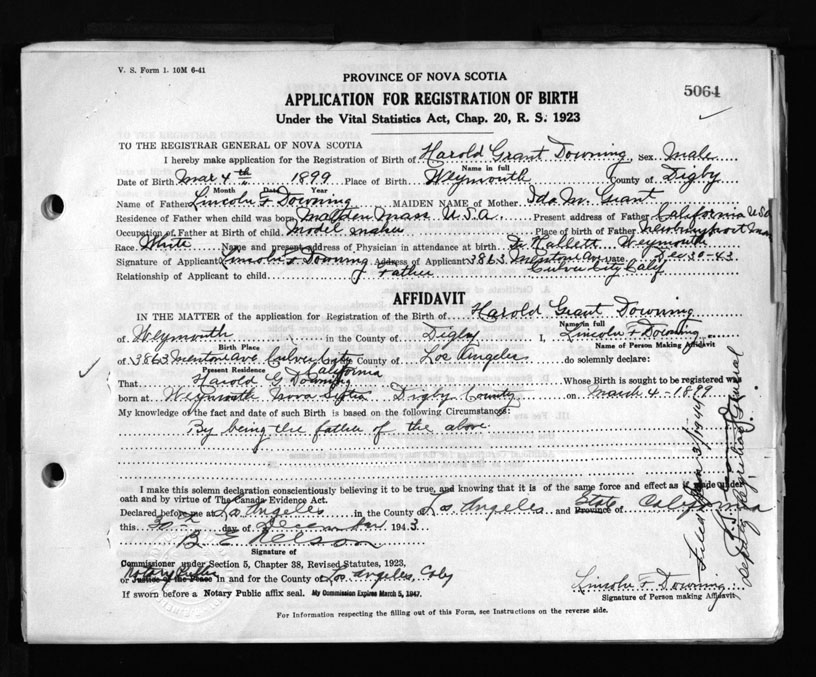 V. S. Form 1. 10M 6-41
PROVINCE OF NOVA SCOTIA
5064
APPLICATION FOR REGISTRATION OF BIRTH
Under the Vital Statistics Act, Chap. 20, R. S. 1923
TO THE REGISTRAR GENERAL OF NOVA SCOTIA
I hereby make application for the Registration of Birth of Harold Grant Downing, Sex Male
Name in full
Date of Birth Mar 4th 1899 Place of Birth Weymouth County of Digby
Month Date Year
Name of Father Lincoln F Downing MAIDEN NAME of Mother Ida M. Grant
Residence of Father when child was born Malden Mass U.S.A. Present address of Father California USA
Occupation of Father at Birth of child Model maker Place of birth of Father Newburyport Mass
Race White Name and present address of Physician in attendance at birth Dr Hallett Weymouth
Signature of Applicant Lincoln F. Downing Address of Applicant 3863 Menton Av Date Dec 30-43
Relationship of Applicant to child Father Culver City Calif
AFFIDAVIT
IN THE MATTER of the application for Registration of the Birth of Harold Grant Downing
Name in full
of Weymouth in the County of Digby I, Lincoln F Downing
Birth Place Name of Person Making Affidavit
of 3863 Menton Ave Culver City in the County of Los Angeles do solemnly declare:
Present Residence California
That Harold G Downing Whose Birth is sought to be registered was
born at Weymouth Nova Scotia Digby County on March 4-1899
My knowledge of the fact and date of such Birth is based on the following Circumstances:
By being the father of the above
I make this solemn declaration conscientiously believing it to be true, and knowing that it is of the same force and effect as if made under
oath and by virtue of The Canada Evidence Act.
Declared before me at Los Angeles in the County of Los Angeles and Province of State California
this 30th day of December 1943
B E Nelson
Signature of
Commissioner under Section 5, Chapter 38, Revised Statutes, 1923,
Notary Public
or Justice of the Peace in and for the County of Los Angeles,
Lincoln F Downing
Signature of Person making Affidavit
If sworn before a Notary Public affix seal. My Commission Expires March 5, 1947.
For Information respecting the filling out of this Form, see Instructions on the reverse side.
Filed Jan 3/1944
Deputy Registrar General